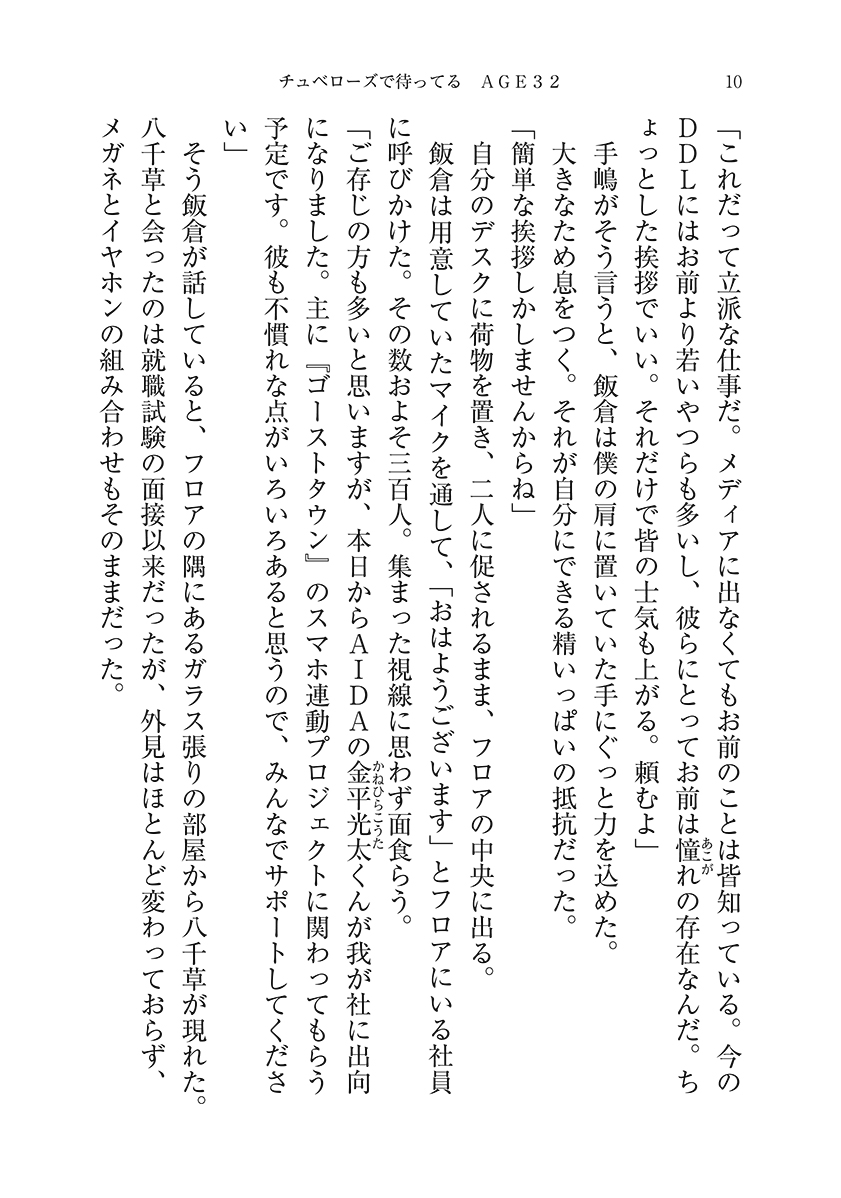 チュベローズで待ってる　ＡＧＥ３２
10
「これだって立派な仕事だ。メディアに出なくてもお前のことは皆知っている。今の
ＤＤＬにはお前より若いやつらも多いし、彼らにとってお前は憧れの存在なんだ。ち
あこが
ょっとした挨拶でいい。それだけで皆の士気も上がる。頼むよ」
手嶋がそう言うと、飯倉は僕の肩に置いていた手にぐっと力を込めた。
大きなため息をつく。それが自分にできる精いっぱいの抵抗だった。
「簡単な挨拶しかしませんからね」
自分のデスクに荷物を置き、二人に促されるまま、フロアの中央に出る。
飯倉は用意していたマイクを通して、「おはようございます」とフロアにいる社員
に呼びかけた。その数およそ三百人。集まった視線に思わず面食らう。
「ご存じの方も多いと思いますが、本日からＡＩＤＡの金平光太くんが我が社に出向
かねひらこうた
になりました。主に『ゴーストタウン』のスマホ連動プロジェクトに関わってもらう
予定です。彼も不慣れな点がいろいろあると思うので、みんなでサポートしてくださ
い」
そう飯倉が話していると、フロアの隅にあるガラス張りの部屋から八千草が現れた。
八千草と会ったのは就職試験の面接以来だったが、外見はほとんど変わっておらず、
メガネとイヤホンの組み合わせもそのままだった。